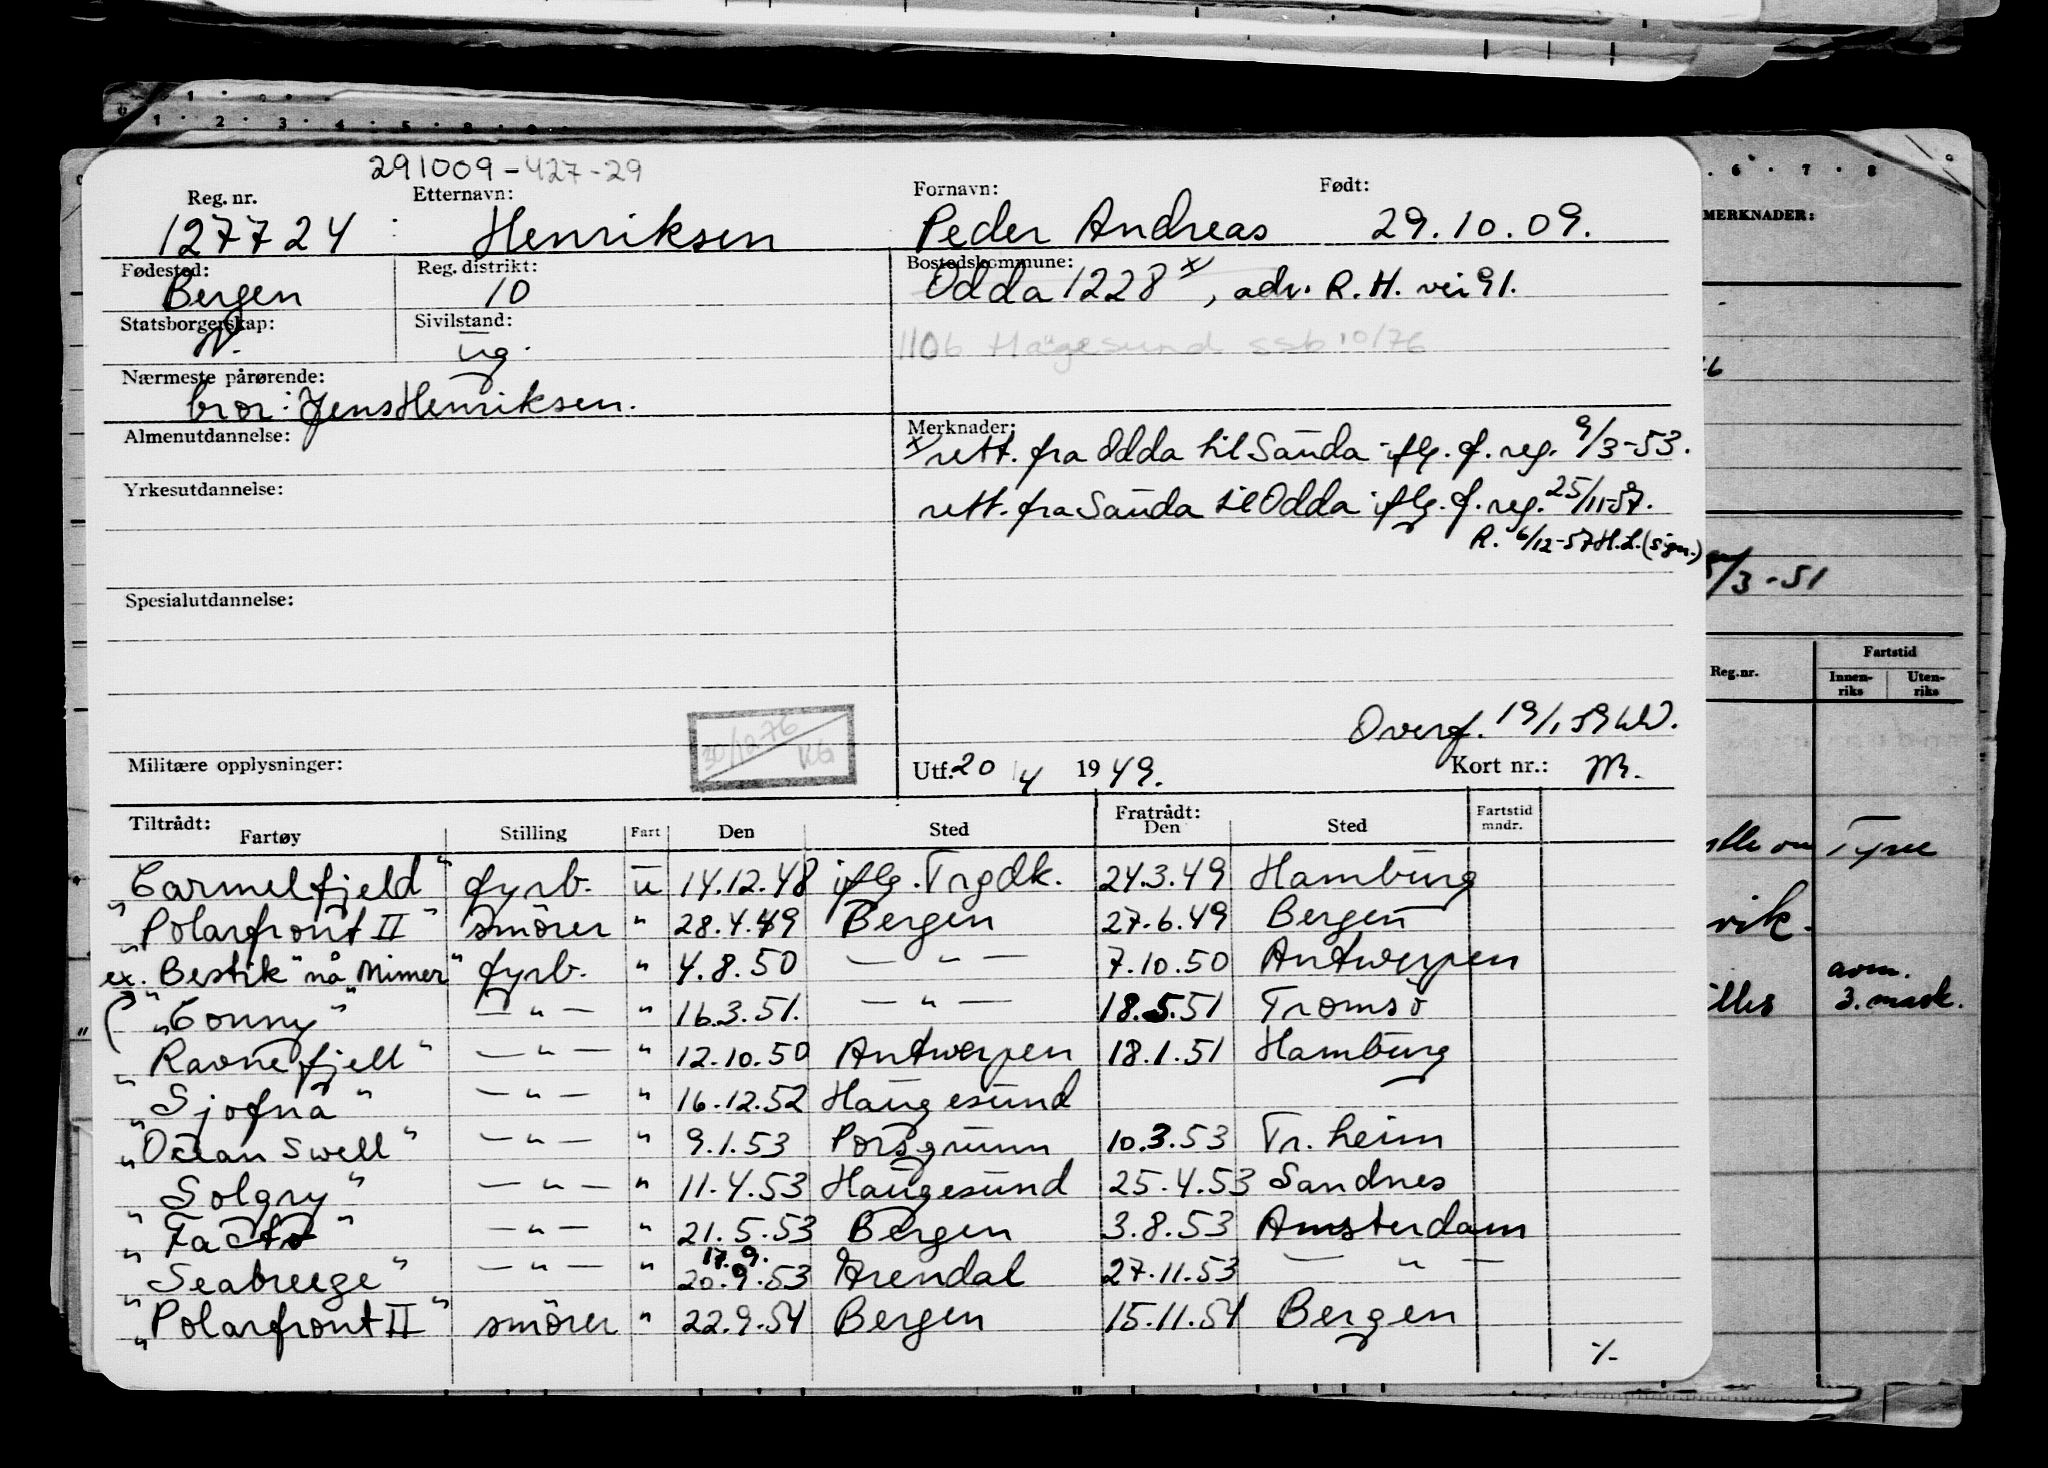 291009-427-29
Reg. nr. Etternavn: Fornavn: Født:
127724 : Henriksen Peder Andreas 29.10.09.
Fødested: Reg. distrikt: Bostedskommune:
Bergen 10 Odda 1228 x, adr. R. H. vei 91.
Statsborgerskap: Sivilstand:
ug. 1106 Haugesund ssb 10/76
Nærmeste pårørende:
bror: Jens Henriksen.
Almenutdannelse: Merknader:
x rett. fra Odda til Sauda iflg. f. reg. 9/3-53.
Yrkesutdannelse:
rett. fra Sauda til Odda iflg. f. reg. 25/11-57.
R. 6/12-57 H.L. (sign.)
Spesialutdannelse:
Overf. 19/1 59
30/10-76
Militære opplysninger: Utf. 20/4 1949. Kort nr.:
Tiltrådt: Fratrådt: Fartstid
Fartøy Stilling Fart Den Sted Den Sted mndr.
"Carmelfjeld" fyrb. u 14.12.48 iflg. Trgdk. 24.3.49 Hamburg
"Polarfront II" smörer " 28.4.49 Bergen 27.6.49 Bergen
ex. "Bestik" nå "Mimer" fyrb. " 4.8.50 — " — 7.10.50 Antwerpen
"Conny" — " — " 16.3.51. — " — 18.5.51 Tromsö
"Ravnefjell" — " — " 12.10.50 Antwerpen 18.1.51 Hamburg
"Sjofna" — " — " 16.12.52 Haugesund
"Ocean Swell" — " — " 9.1.53 Porsgrunn 10.3.53 Tr.heim
"Solgry" — " — " 11.4.53 Haugesund 25.4.53 Sandnes
"Facto" — " — " 21.5.53 Bergen 3.8.53 Amsterdam
17.9.
"Seabreeze" — " — " 20.9.53 Arendal 27.11.53 — " —
"Polarfront II" smörer " 22.9.54 Bergen 15.11.54 Bergen
·/·
MERKNADER:
5/3-51
Reg.nr. Fartstid
Innenriks Utenriks
Tyne
vik.
3. mask.